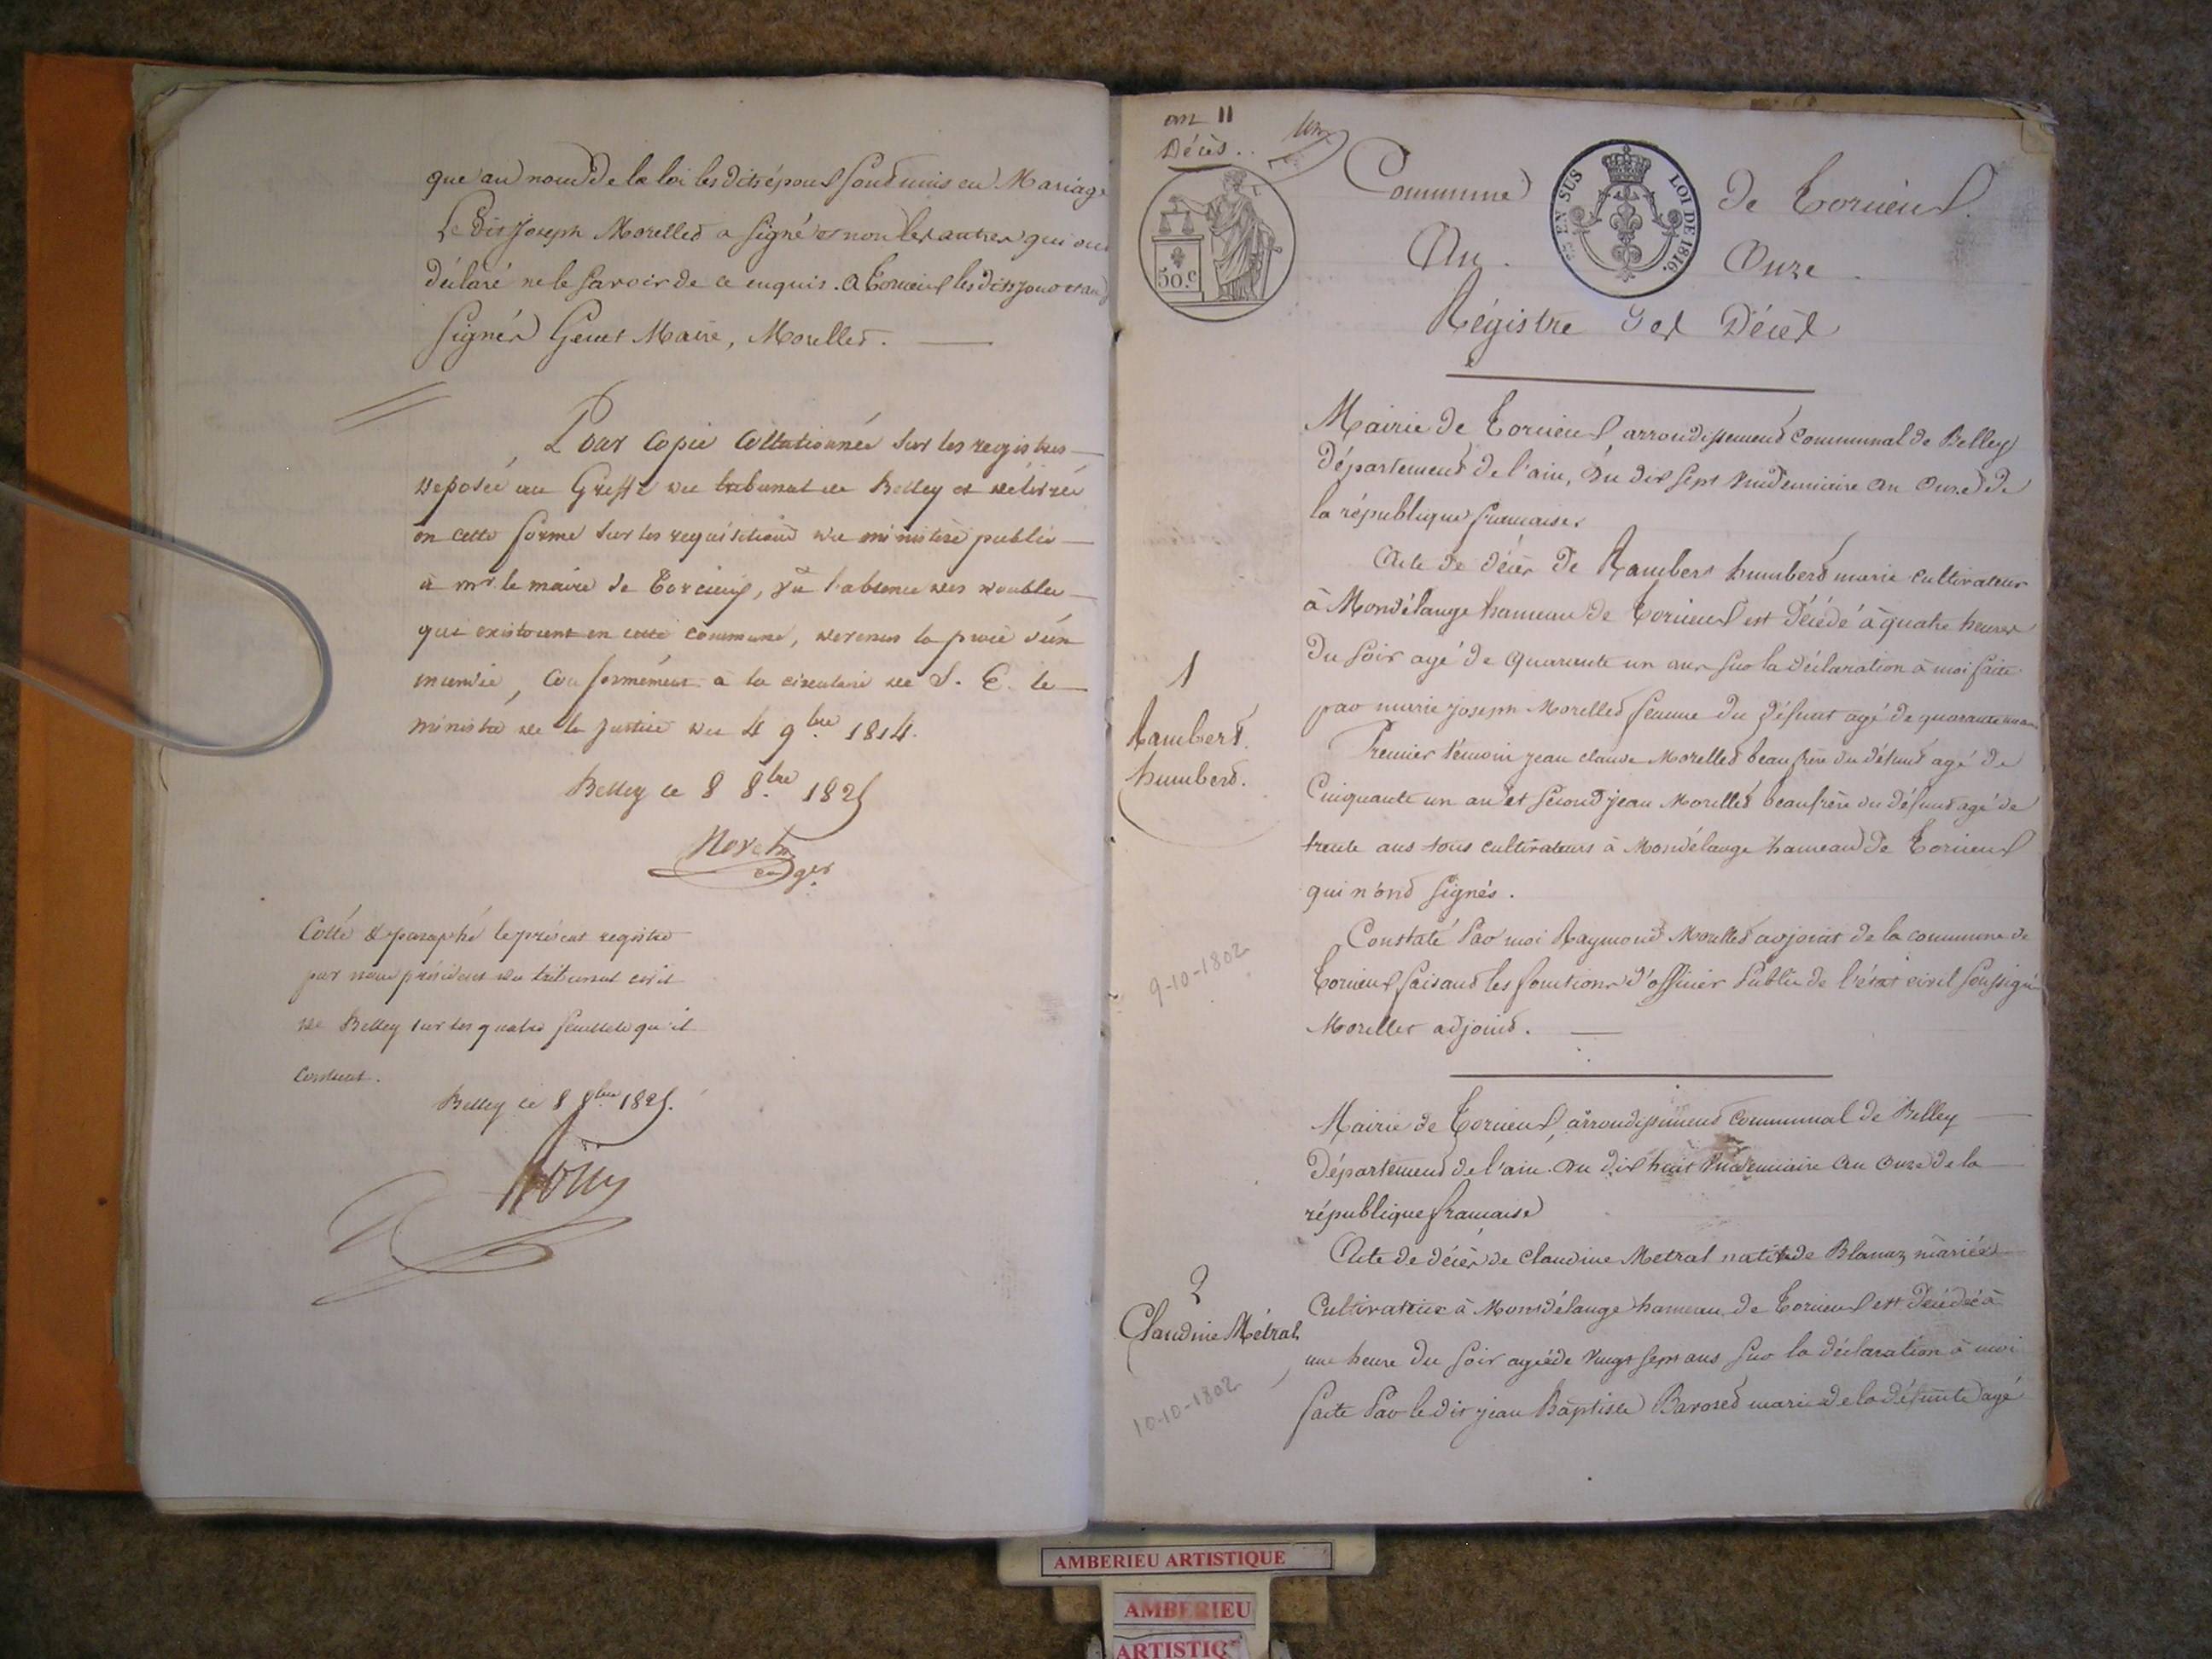 que au nom de la loi les dits époux sont unis en Mariage
Le dit Joseph Morellet a signé et non les autres qui ont
déclaré ne le savoir de ce enquis. A Torcieux les dits jour et an
signés Genet Maire, Morellet.
Pour Copie Collationnée sur les registres
déposés au Greffe du tribunal de Belley et délivrée
en cette forme sur les requisitions du ministère public
à mr. le maire de Torcieux, vû l'absence des doubles
qui existoient en cette commune, devenus la proie d'un
incendie, Conformément à la circulaire de S. E. le
ministre de la justice du 4 9bre 1814.
Belley le 8 8bre 1825
Cotté & paraphé le présent registre
par nous président du tribunal civil
de Belley sur les quatre feuillets qu'il
contient.
Belley le 8 8bre 1825.
an 11
Décès.
Commune de Torcieux.
EN SUS LOI DE 1816.
50.c
An Onze
Régistre des Décès
Mairie de Torcieux arrondissement communal de Belley
Département de l'ain, du dix sept Vindemiaire an Onze de
la république française
Acte de décès de Rambert humbert marié cultivateur
à Mondélange hameau de Torcieux est décédé à quatre heures
du soir agé de quarente un ans sur la déclaration à moi faite
par marie joseph Morellet femme du défunt agé de quarante un ans
Premier témoin jean claude Morellet beau frère du défunt agé de
Cinquante un an et second jean Morellet beaufrère du défunt agé de
trente ans tous cultivateurs à Mondélange hameau de Torcieux
qui n'ont signés.
Constaté Par moi Raymond Morellet adjoint de la commune de
Torcieux faisant les fonctions d'officier Public de l'état civil soussigné
Morellet adjoint.
1
Rambert
humbert.
9-10-1802
Mairie de Torcieux, arrondissement communal de Belley
Département de l'ain du dix huit Vindemiaire an onze de la
république française
Acte de décès de Claudine Metral native de Blanaz mariée
Cultivatrice à Mondélange hameau de Torcieux est décédé à
une heure du soir agée de vingt sept ans sur la déclaration à moi
faite Par le dit jean Baptiste Baroset mari de la défunte agé
2
Claudine Métral
10-10-1802
AMBERIEU ARTISTIQUE
AMBERIEU
ARTISTIQ